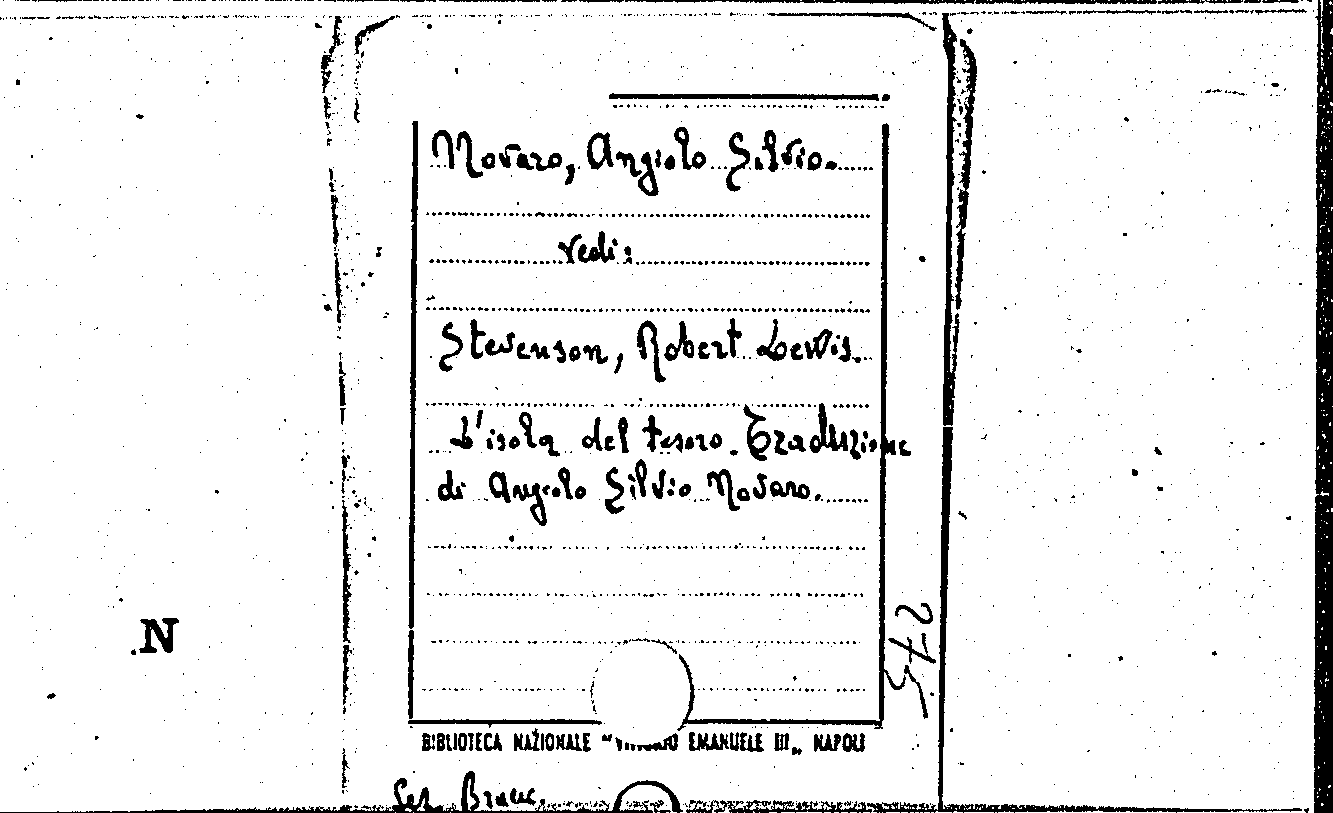 Novaro, Angiolo Silvio.
vedi:
Stevenson, Robert Lewis.
L'isola del tesoro. Traduzione
di Angiolo Silvio Novaro.
275
N
BIBLIOTECA NAZIONALE "VITTORIO EMANUELE III„ NAPOLI